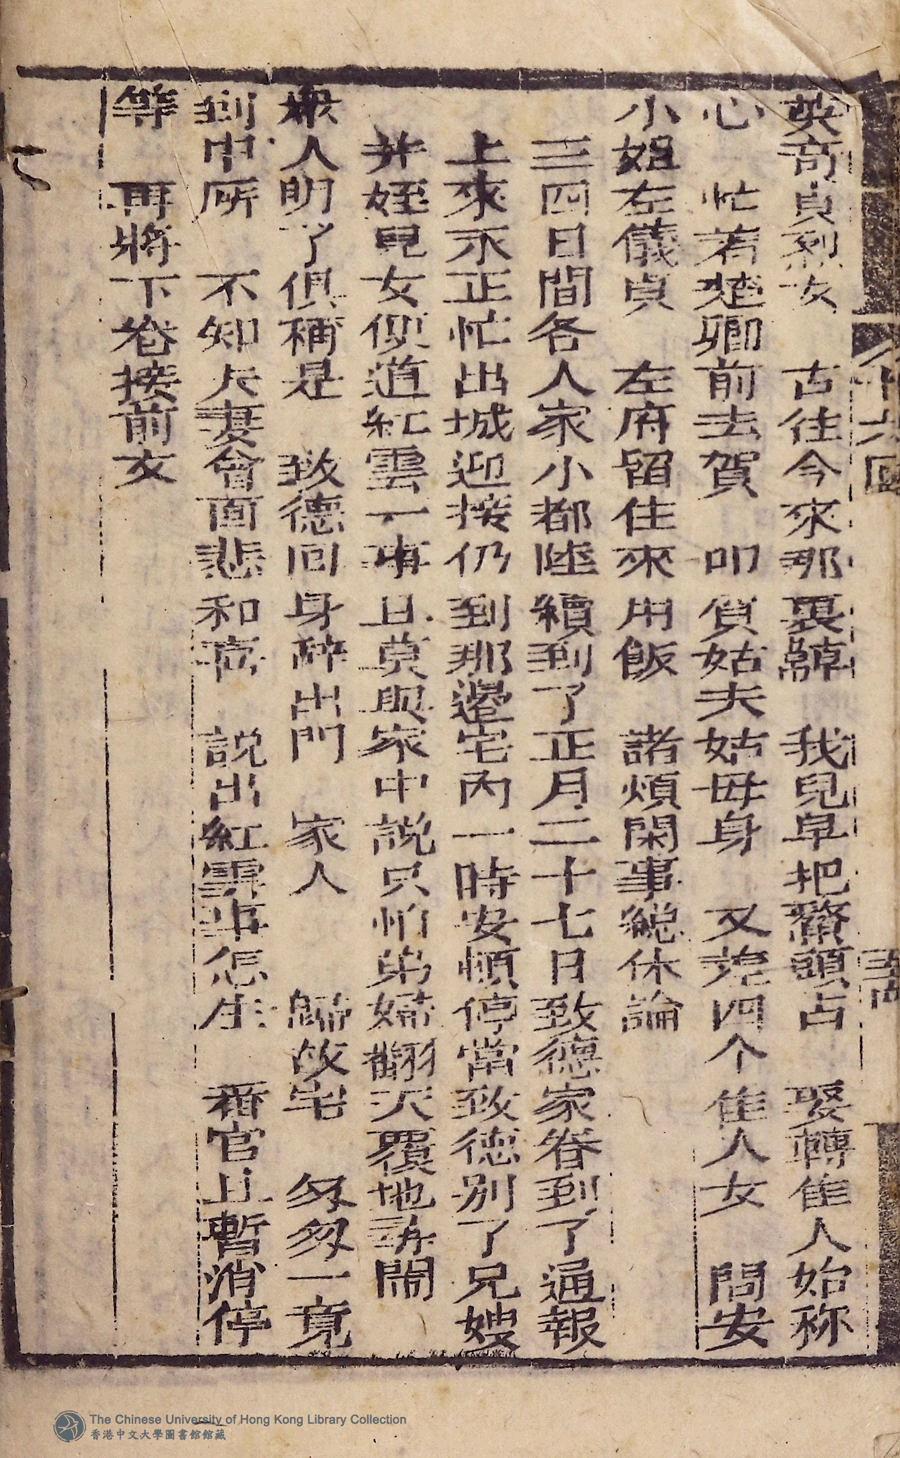 英奇貞烈女　古往今來那裏歸　我兒早把鰲頭占　娶轉隹人始称
心　忙若楚卿前去賀　叩賀姑夫姑母身　又差四个隹人女　問安
小姐左儀貞　左府留住來用飯　諸煩閑事總休論
三四日間各人家小都陸續到了正月二十七日致德家眷到了通報
上來永正忙出城迎接仍到那邊宅內一時安頓停當致德別了兄嫂
并姪兒女便道紅雲一事且莫與家中説只怕弟婦翻天覆地尋鬧
衆人明了俱稱是　致德回身辞出門　家人　歸故宅　匆匆一竟
到中所　不知夫妻會面悲和喜　説出紅雲事怎生　稗官且暫消停
等　再將下卷接前文
十六回
The Chinese University of Hong Kong Library Collection
香港中文大學圖書館館藏